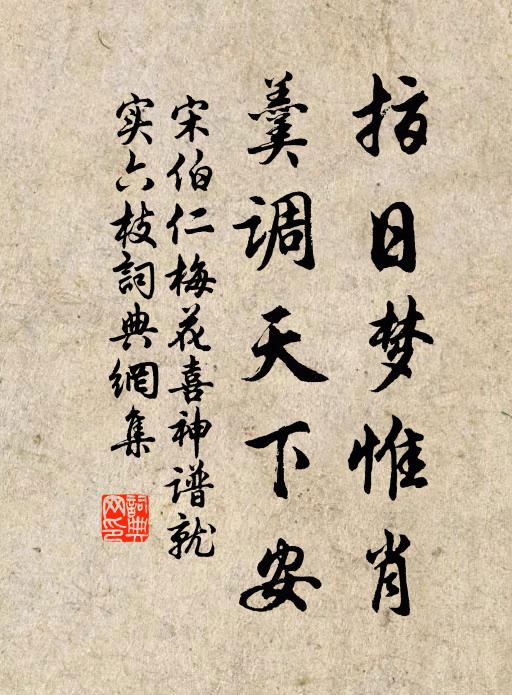 指日梦惟肖
羹调天下安
宋伯仁梅花喜神谱就
实六枝詞典網集
詞典
网印